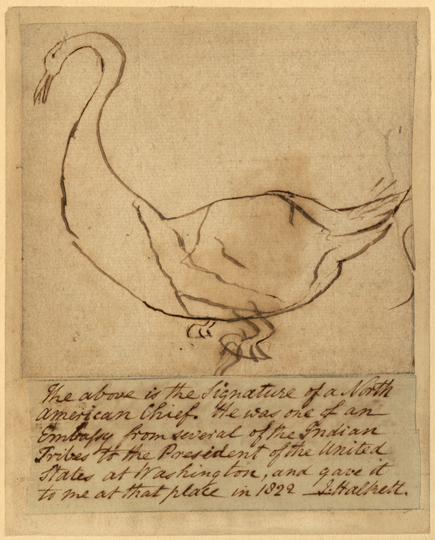 The above is the Signature of a North
American Chief. He was one of an
Embassy from several of the Indian
Tribes to the President of the United
States at Washington, and gave it
to me at that place in 1822 J. Halkett.